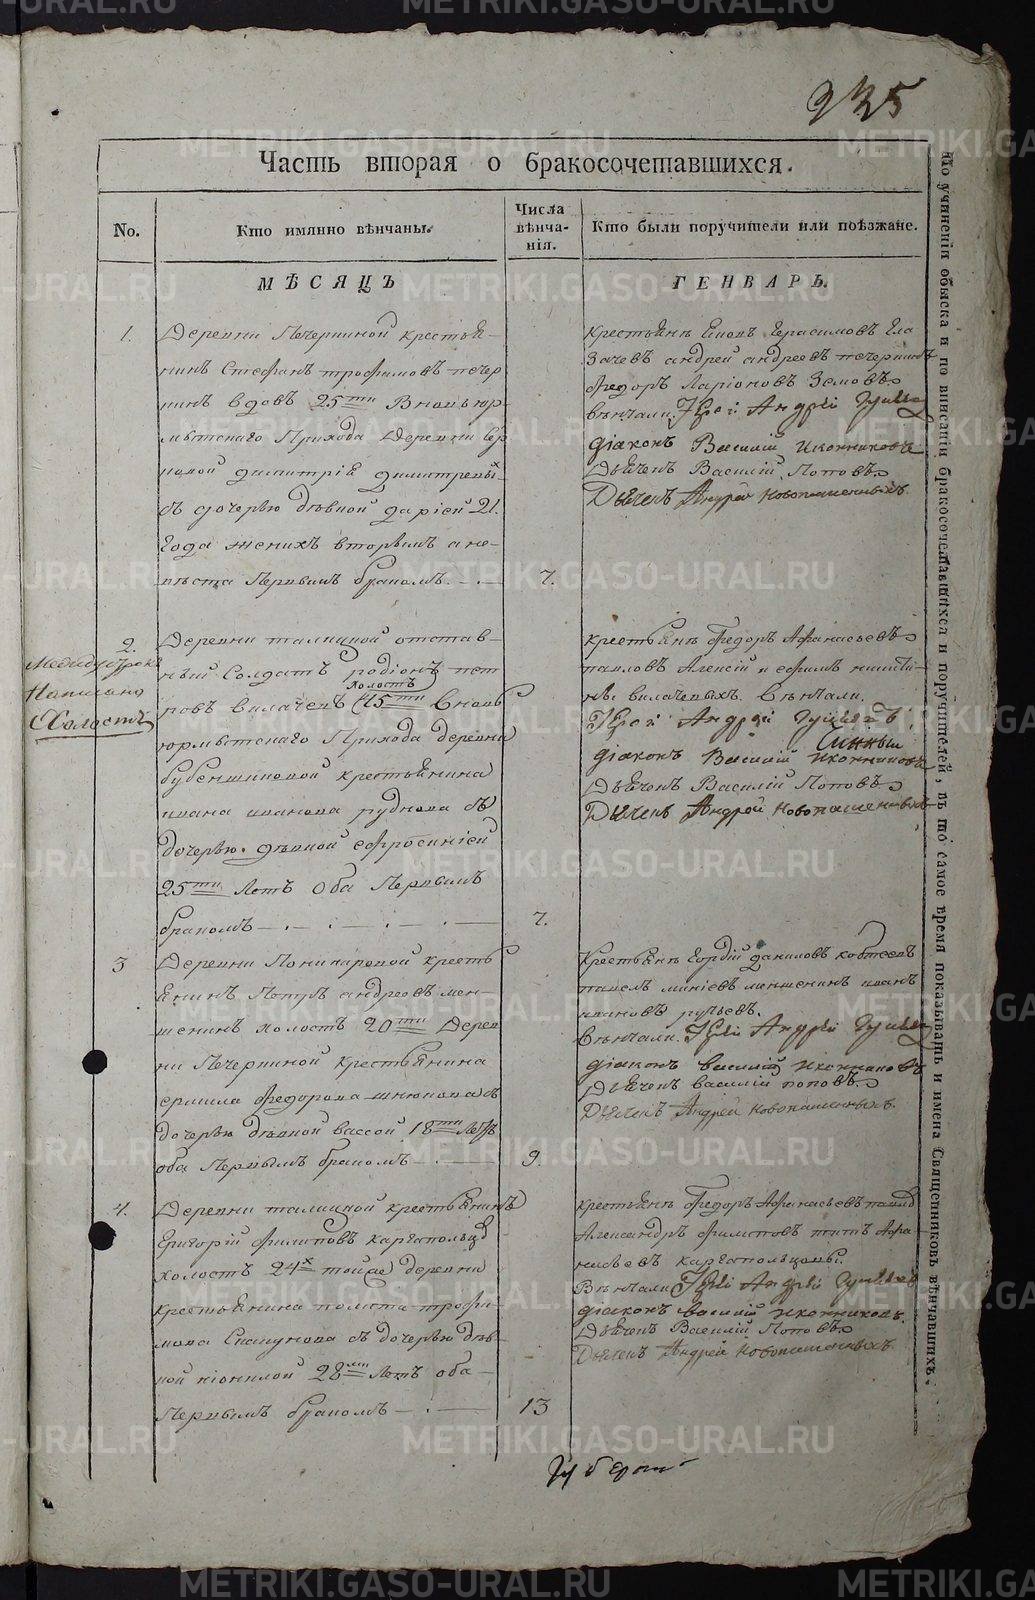 935
Часть вторая о бракосочетавшихся.
No.
Кто имянно вѣнчаны.
Числа вѣнча-нія.
Кто были поручители или поѣзжане.
МѢСЯЦЪ
ГЕНВАРЬ.
1.
Деревни Печеркиной крестья-
нинъ Стефанъ трофимовъ печер
кинъ вдовъ 25ти Вновь юр
мытскаго Прихода Деревни
димитрія димитреевы
съ дочерью дѣвкой дарiей 21.
года женихъ вторымъ а не-
вѣста Первымъ бракомъ.
7.
крестьянѣ Герасимовъ
андрей андреевъ печеркинъ
федоръ Ларіоновъ Земовъ
вѣнчали Іерей Андрей
діаконъ Василій Иконниковъ
Дьячекъ Василій Поповъ
Дьячекъ Андрей Новопашенныхъ
2.
Между строкъ
Написано
Холостъ
Деревни талицкой отстав-
ный Солдатъ родіонъ пет
ровъ вилачевъ холостъ 45ти Вновь
юрмытскаго Прихода деревни
бубенщиковой крестьянина
ивана иванова руднова съ
дочерью дѣвкой ефросиніей
25ти Летъ Оба Первымъ
бракомъ
7.
крестьянѣ Федоръ Афанасьевъ
павловъ Алексій и ефимъ никити
ны вилачевыхъ. Вѣнчали.
Іерей Андрей
діаконъ Василій Иконниковъ
Дьячекъ Василій Поповъ
Дьячекъ Андрей Новопашенныхъ
3
Деревни Пономаревой кресть
янинъ Петръ андреевъ мен-
шенинъ холостъ 20ти Дерев
ни Печеркиной крестьянина
ермила федорова с
дочерью дѣвкой вассой 18ти Летъ
оба Первымъ бракомъ
9.
Крестьянѣ Гордій даниловъ
павелъ миніевъ меншенинъ иванъ
ивановъ
Вѣнчали. Іерей Андрей
діаконъ василій иконниковъ
Дьячекъ василій поповъ.
Дьячекъ Андрей Новопашенныхъ.
4.
Деревни талицкой крестьянинъ
Григорій филиповъ каргапольцовъ
холостъ 24х той же деревни
крестьянина трофи-
мова с дочерью дѣв-
кой неонилой 28ми Летъ оба-
Первымъ бракомъ
13
крестьянѣ Федоръ Афанасьевъ павл
Александръ филиповъ Афа-
насьевъ каргапольцовы.
Вѣнчали Іерей Андрей
діаконъ василій иконниковъ.
Дьячекъ Василій Поповъ
Дьячекъ Андрей Новопашенныхъ.
По учиненіи обыска и по вписаніи бракосочетавшихся и поручителей, въ то самое время показывать и имена Священниковъ вѣнчавшихъ.
METRIKI.GASO-URAL.RU